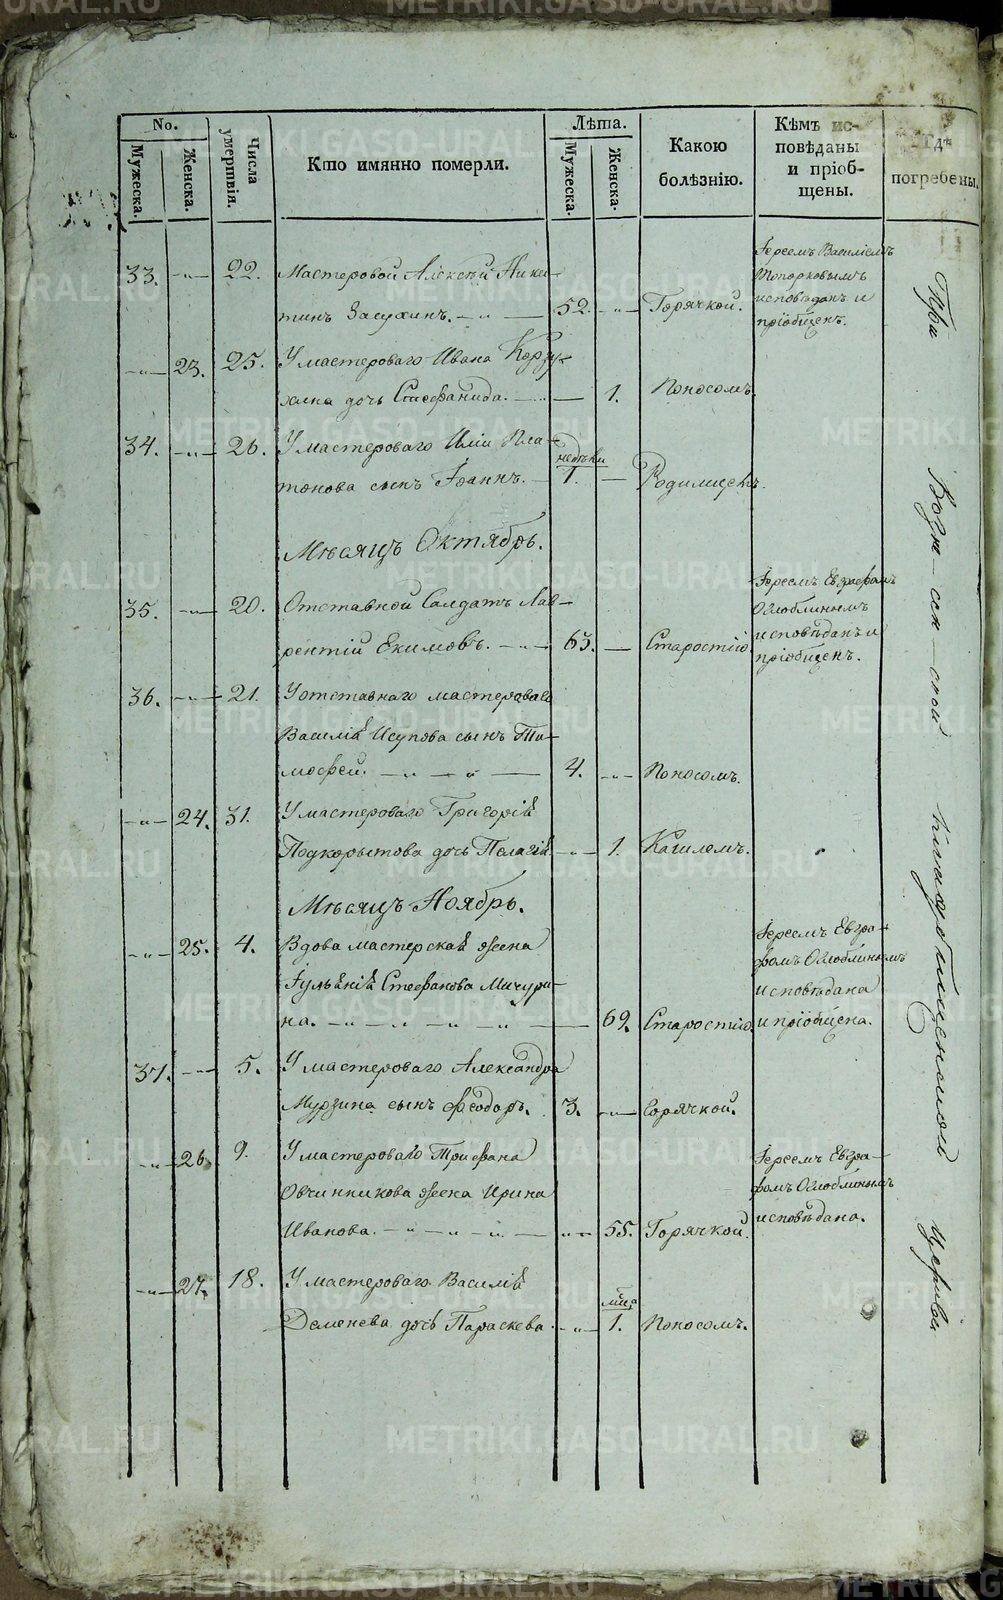 No.
Мужеска.
Женска.
Числа умертвія.
Кто имянно померли.
Лѣта.
Мужеска.
Женска.
Какою болѣзнію.
Кѣмъ ис-
повѣданы
и пріоб-
щены.
погребены.
33. -„- 22. Мастеровой Алексѣй Ники-
тинъ Засухинъ. -„- 52. -„- Горячкой.
Іереемъ Василіемъ
Топорковымъ
исповѣданъ и
пріобщенъ.
-„- 23. 25. У мастероваго Ивана
дочь Стефанида. — 1. Поносомъ.
34. -„- 26. У мастероваго Иліи Пла-
тонова сынъ Іоаннъ. — недѣли 1. — Родимцемъ.
Мѣсяцъ Октябрь.
35. -„- 20. Отставной Салдатъ Лав-
рентій Екимовъ. -„- 63. — Старостію.
Іереемъ Евграфомъ
Оглоблинымъ
исповѣданъ и
пріобщенъ.
36. -„- 21. У отставнаго мастероваго
Василія Исупова сынъ Ти-
мофей. -„-„- 4. -„- Поносомъ.
-„- 24. 31. У мастероваго Григорія
Подкорытова дочь Пелагія. -„- 1. Кашлемъ.
Мѣсяцъ Ноябрь.
-„- 25. 4. Вдова мастерская жена
Іульянія Стефанова Мичури-
на. -„-„-„-„- 69. Старостію.
Іереемъ Евгра-
фомъ Оглоблинымъ
исповѣдана
и пріобщена.
37. -„- 5. У мастероваго Александра
Мурзина сынъ Ѳеодоръ. 3. -„- Горячкой.
-„- 26. 9. У мастероваго Трифана
Овчинникова жена Ирина
Иванова. -„-„-„- -„- 55. Горячкой.
Іереемъ Евгра-
фомъ Оглоблинымъ
исповѣдана.
-„- 27. 18. У мастероваго Василія
Деменева дочь Параскева. -„- мца 1. Поносомъ.
При
церкви
METRIKI.GASO-URAL.RU